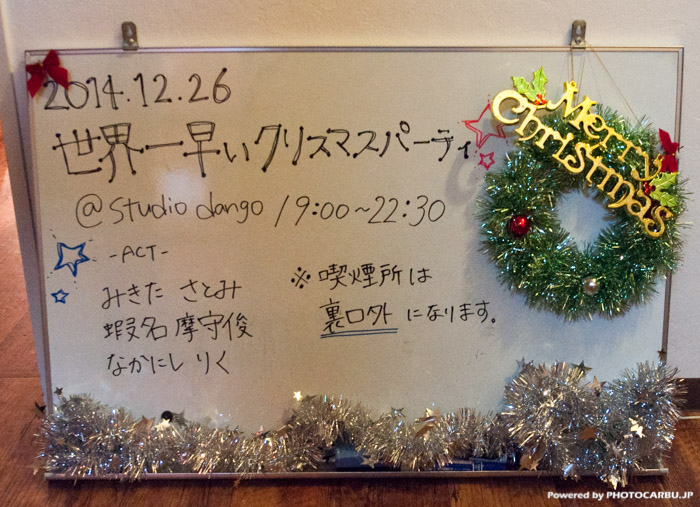 2014.12.26
世界一早いクリスマスパーティ
@studio dango 19:00~22:30
-ACT-
みきた さとみ
蝦名 摩守俊
なかにし りく
※ 喫煙所は
裏口外 になります。
Merry
Christmas
Powered by PHOTOCARBU.JP